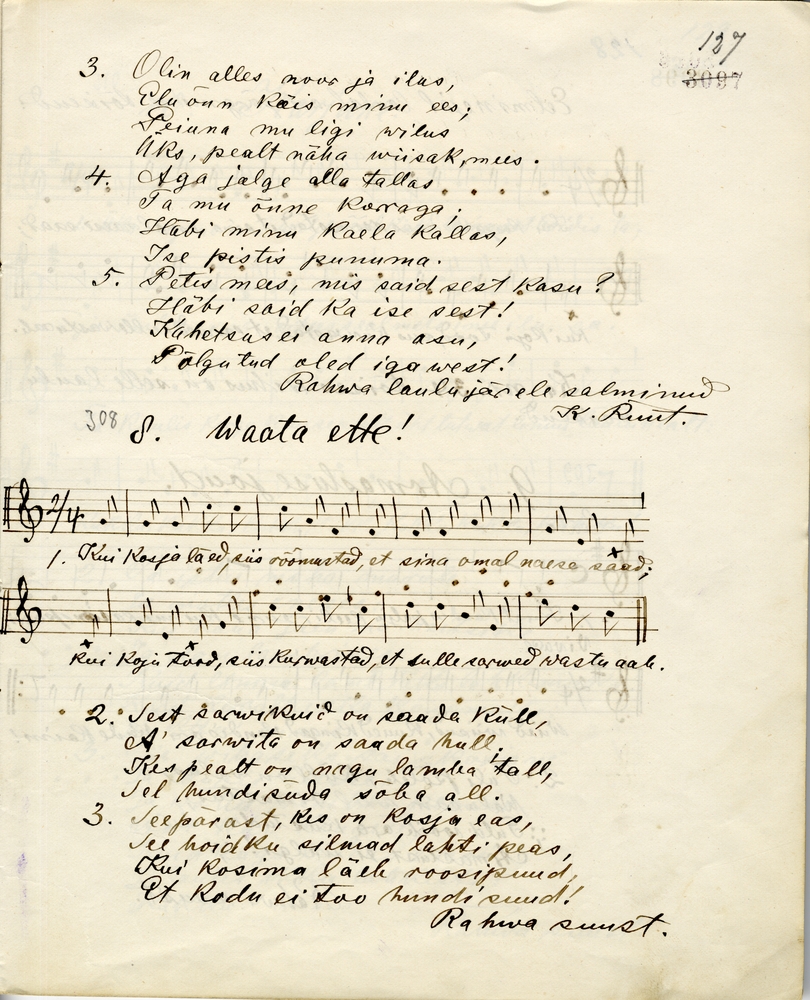 127
3097
3. Olin alles noor ja ilus,
Eluõnn käis minu ees;
Peiuna mu ligi wilus
Üks, pealt näha wiisak, mees.
4. Aga jalge alla tallas
Ta mu õnne korraga;
Häbi minu kaela kallas,
Ise pistis punuma.
5. Petis mees, mis said sest kasu?
Häbi said ka ise sest!
Kahetsus ei anna asu,
Põlgutud oled igawest!
Rahwa laulu järele salminud
K. Ruut.
308
8. Waata ette!
2/4
1. Kui kosja läed, siis rõõmustad, et sina omal naese saad;
kui koju tood, siis kurwastad, et sulle sarwed wastu aab.
2. Sest sarwikuid on saada küll,
A' sarwita on saada hull.
Kes pealt on nagu lamba tall,
Sel hundisüda sõba all.
3. Seepärast, kes on kosja eas,
See hoidku silmad lahti peas,
Kui kosima läeb roosipuud,
Et kodu ei too hundi suud!
Rahwa suust.